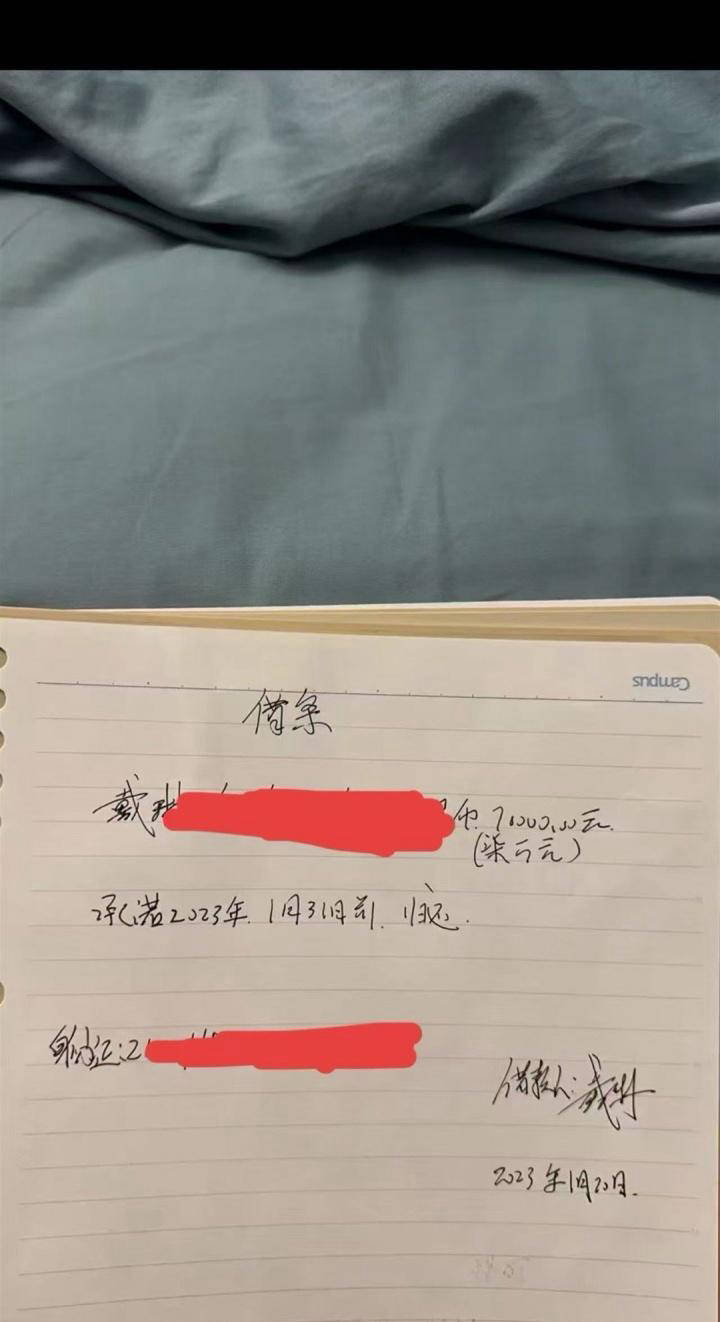 Campus
借条
戴琳 币 7000.00元.
(柒仟元)
承诺2023年 1月31日前 归还.
身份证:2
借款人:戴琳
2023年1月20日.